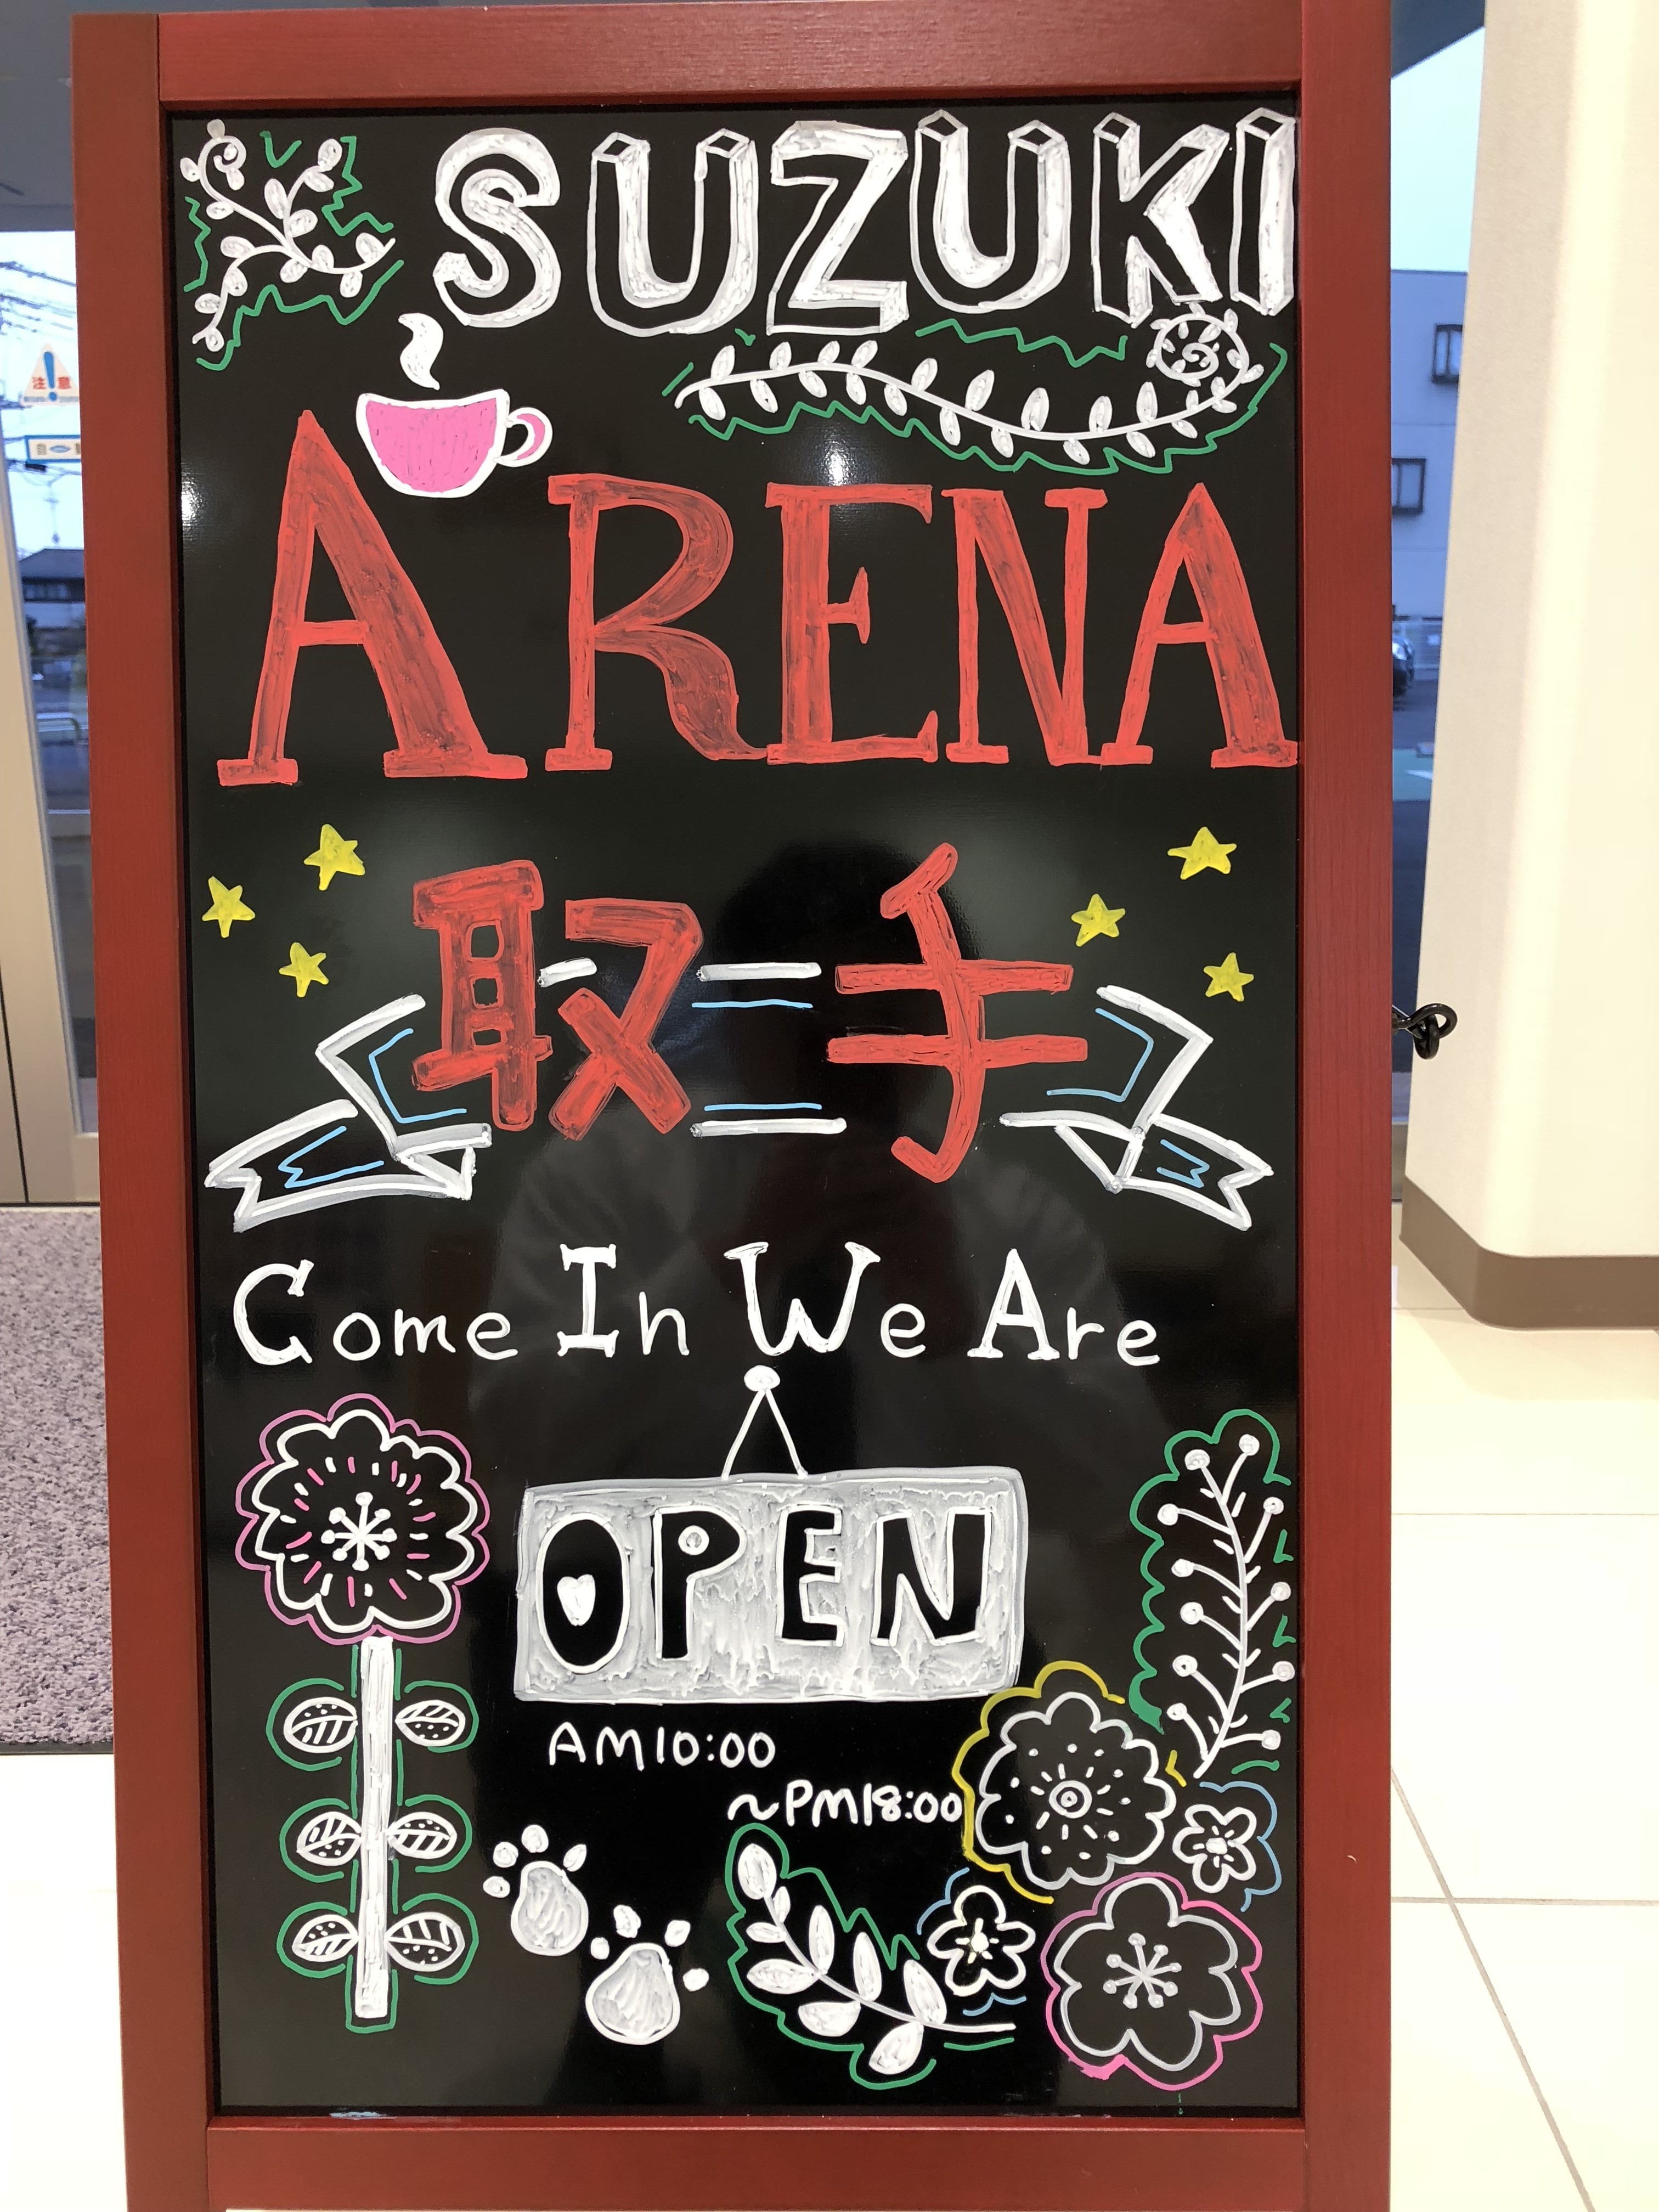 SUZUKI
ARENA
取手
Come In We Are
OPEN
AM10:00
~PM18:00
注意